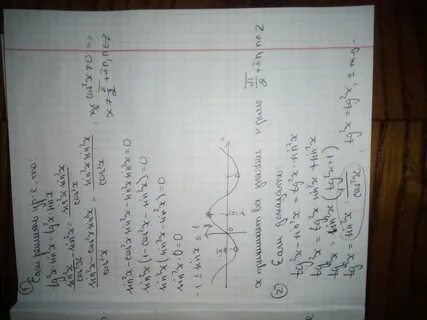 ① Если решить ур-е, то:
tg²x - sin²x = tg²x · sin²x
sin²x/cos²x - sin²x = sin²x · sin²x/cos²x
(sin²x - cos²x sin²x)/cos²x = sin²x sin²x/cos²x, cos²x ≠ 0 =>
x ≠ π/2 + πn, n∈Z
sin²x - cos²x sin²x - sin²x sin²x = 0
sin²x(1 - cos²x - sin²x) = 0
sin²x(sin²x - sin²x) = 0
sin²x · 0 = 0
-1 ≤ sin x ≤ 1
x принимает все значения, кроме π/2 + πn, n∈Z
② Если доказать:
tg²x - sin²x = tg²x · sin²x
tg²x = tg²x · sin²x + sin²x
tg²x = sin²x (tg²x + 1)
tg²x = sin²x · 1/cos²x
tg²x = tg²x, ч.т.д.